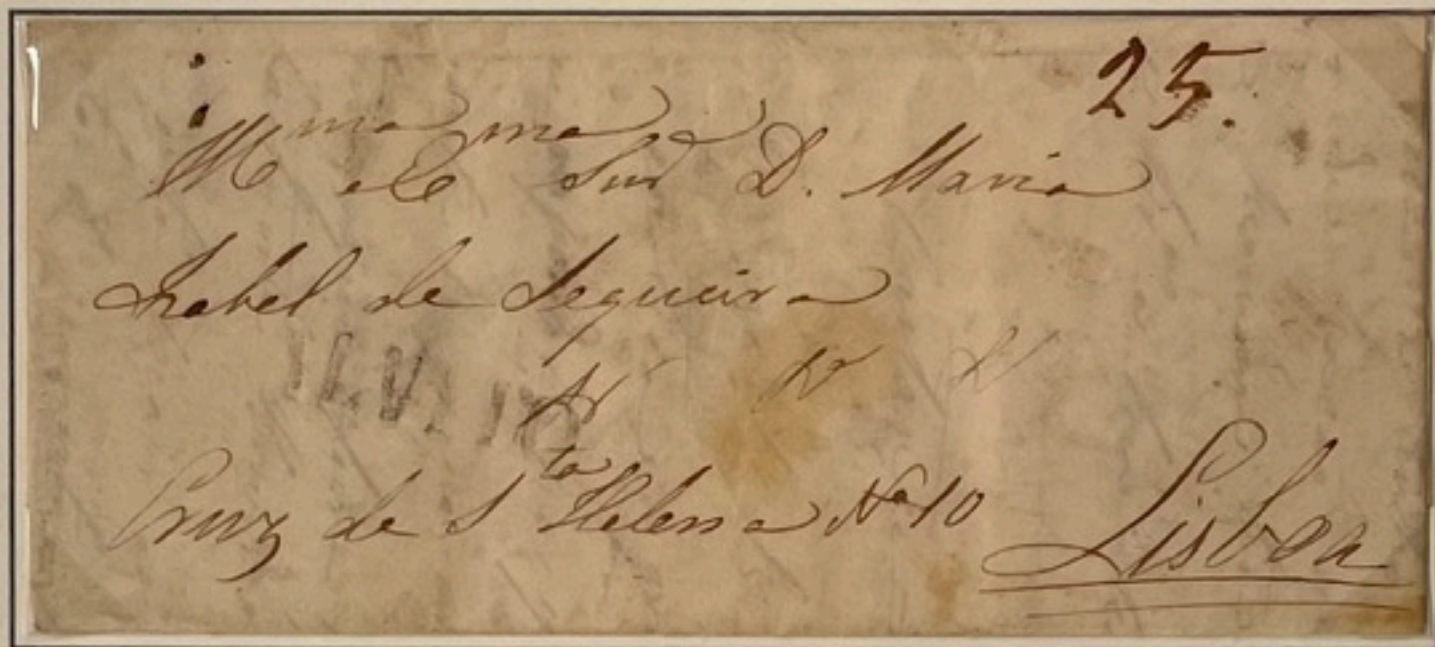 25.
Illma e Exma Snrª D. Maria
Izabel de Sequeira
Cruz de Sta Helena Nº 10
Lisboa